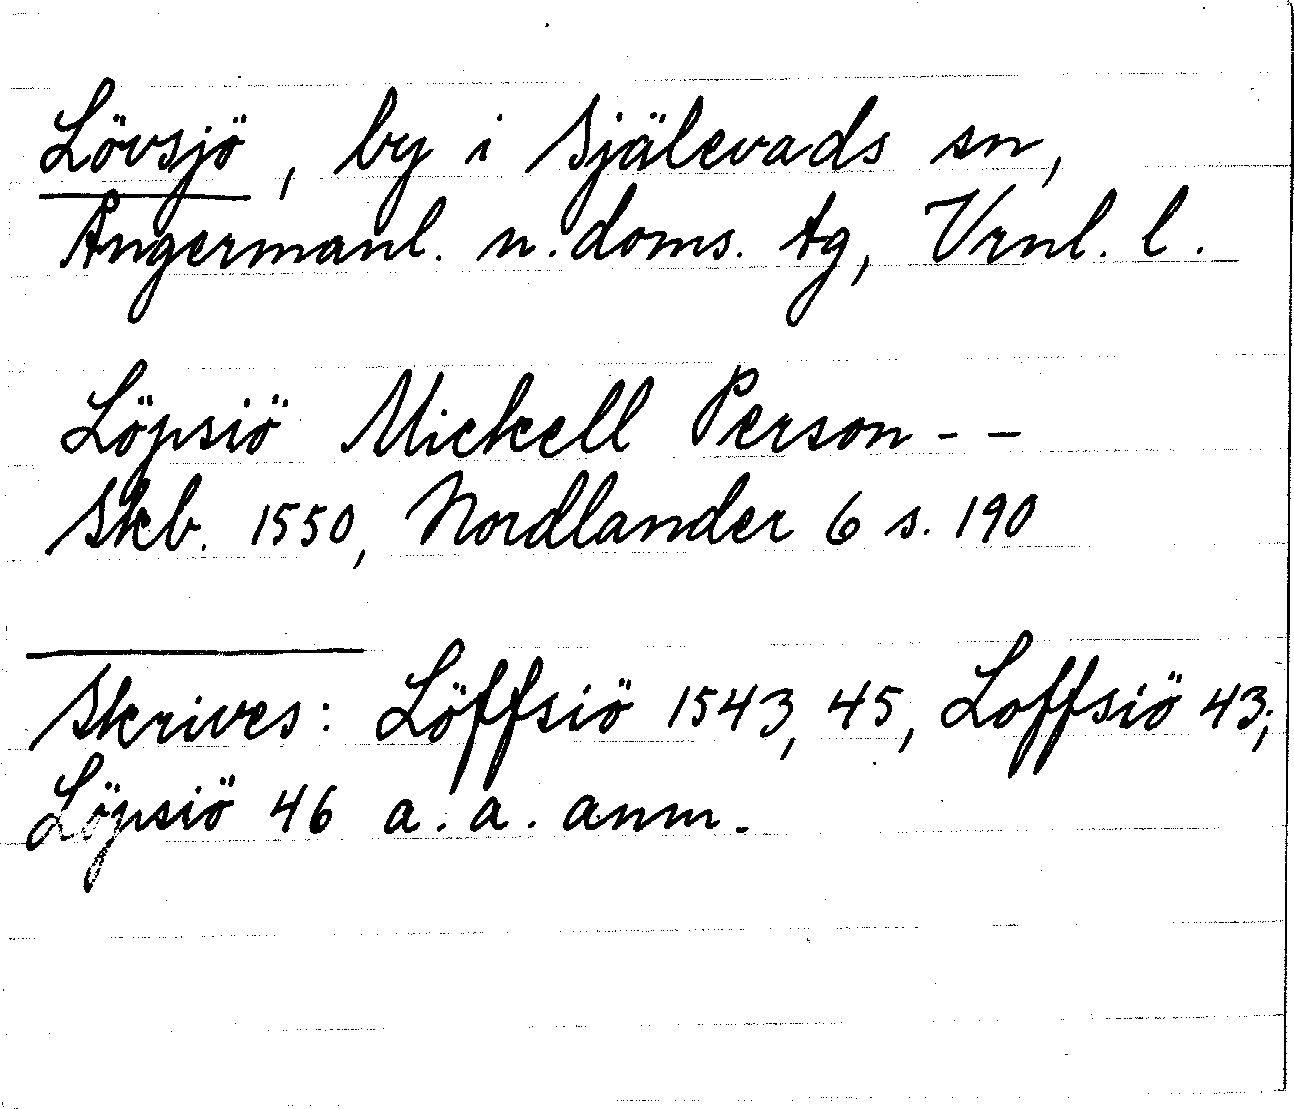 Lövsjö, by i Själevads sn,
Ångermanl. n. doms. tg, Vrnl. l.
Löpsiö Mickell Person - -
Skb. 1550, Nordlander 6 s. 190
Skrives: Löffsiö 1543, 45, Loffsiö 43;
Löpsiö 46 a. a. anm.